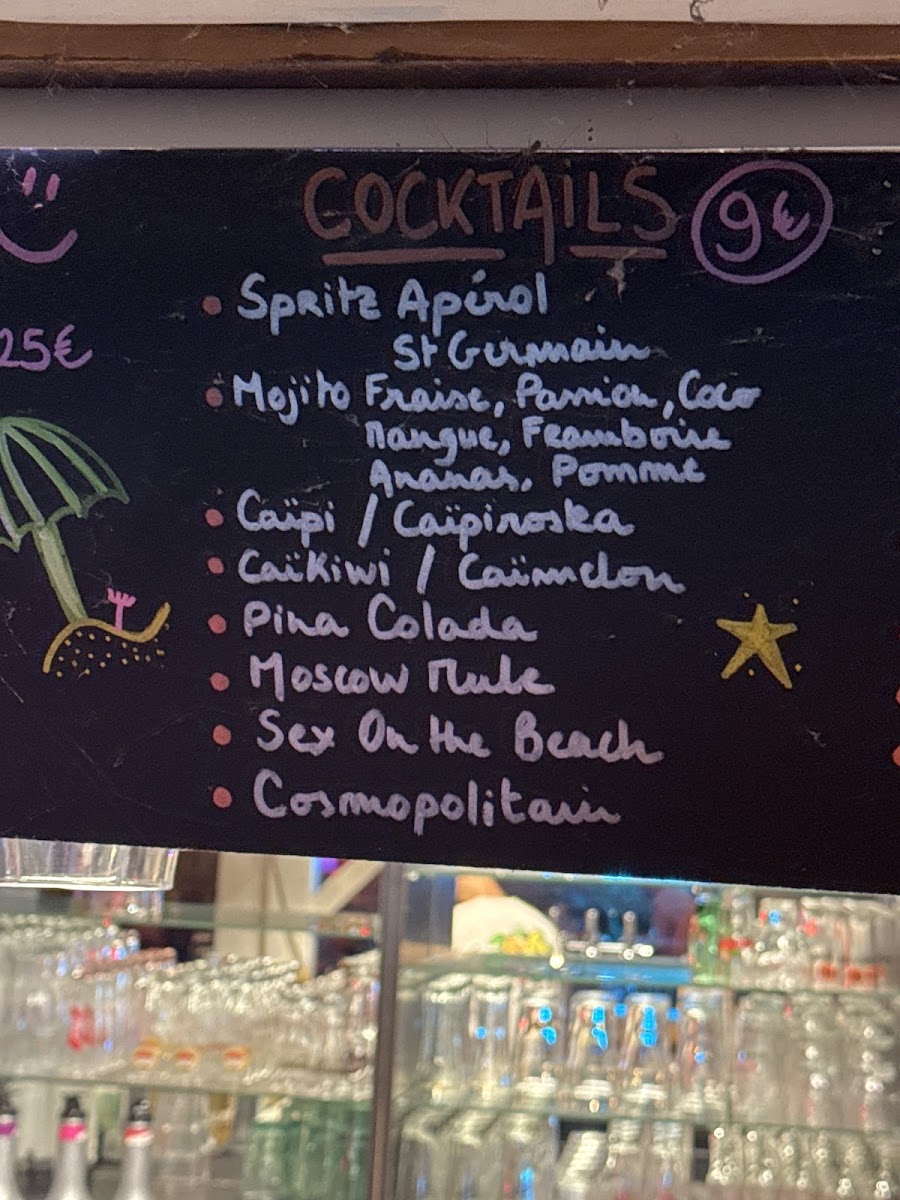 COCKTAILS 9€
25€
• Spritz Apérol
St Germain
• Mojito Fraise, Passion, Coco
Mangue, Framboise
Ananas, Pomme
• Caïpi / Caïpiroska
• Caïkiwi / Caïmelon
• Pina Colada
• Moscow Mule
• Sex On the Beach
• Cosmopolitain